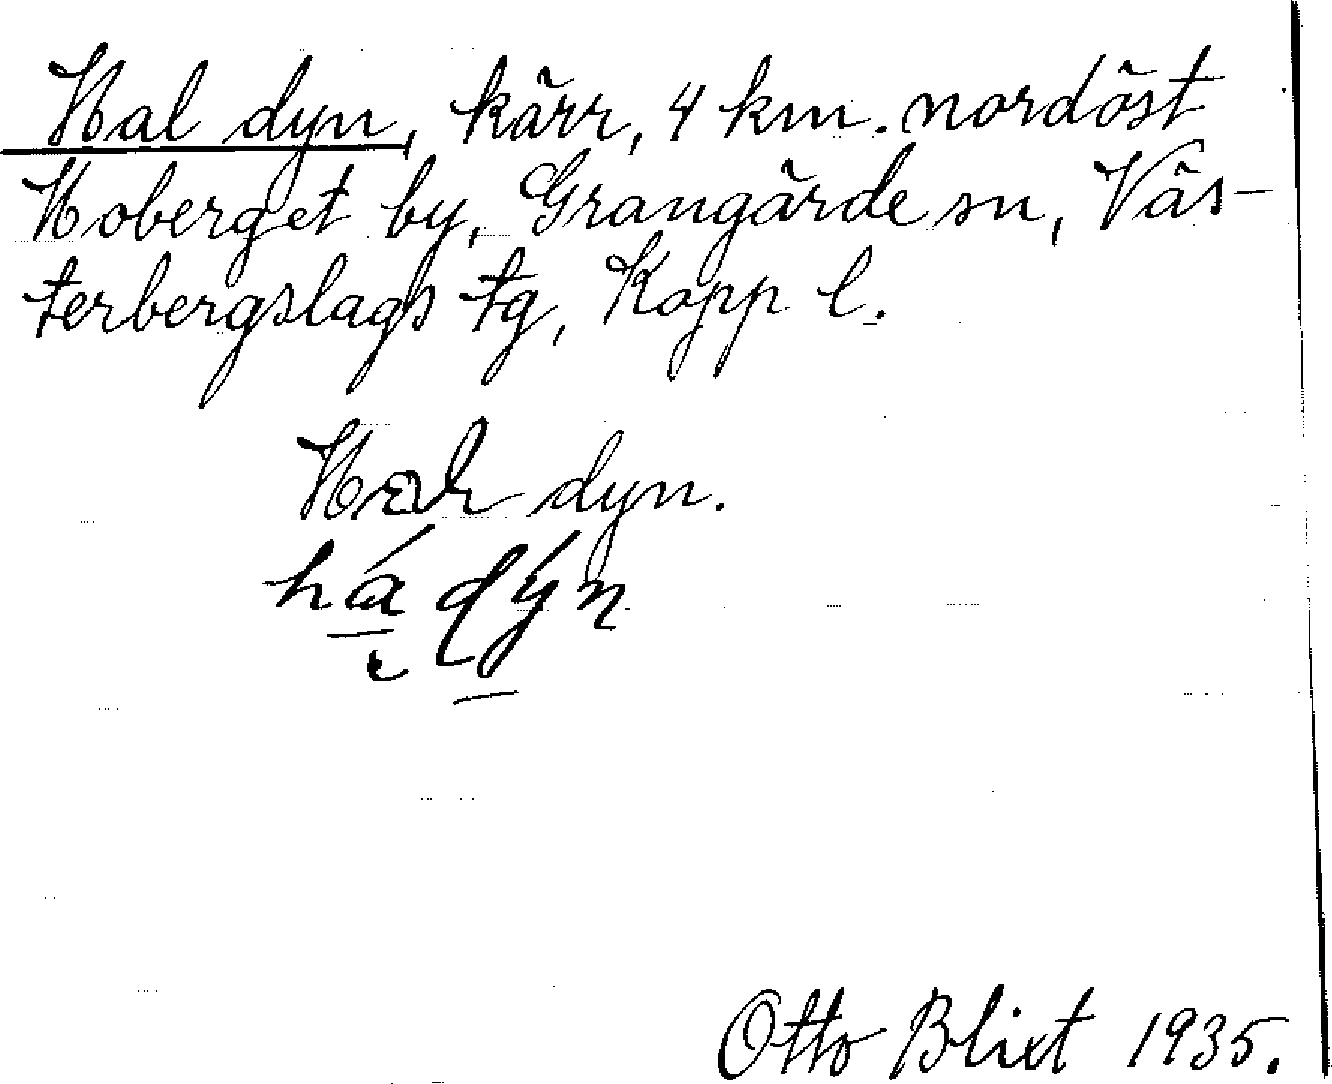 Hal dyn, kärr, 4 km. nordöst
Hoberget by, Grangärde sn, Väs-
terbergslags tg, Kopp l.
dyn.
Otto Blixt 1935.